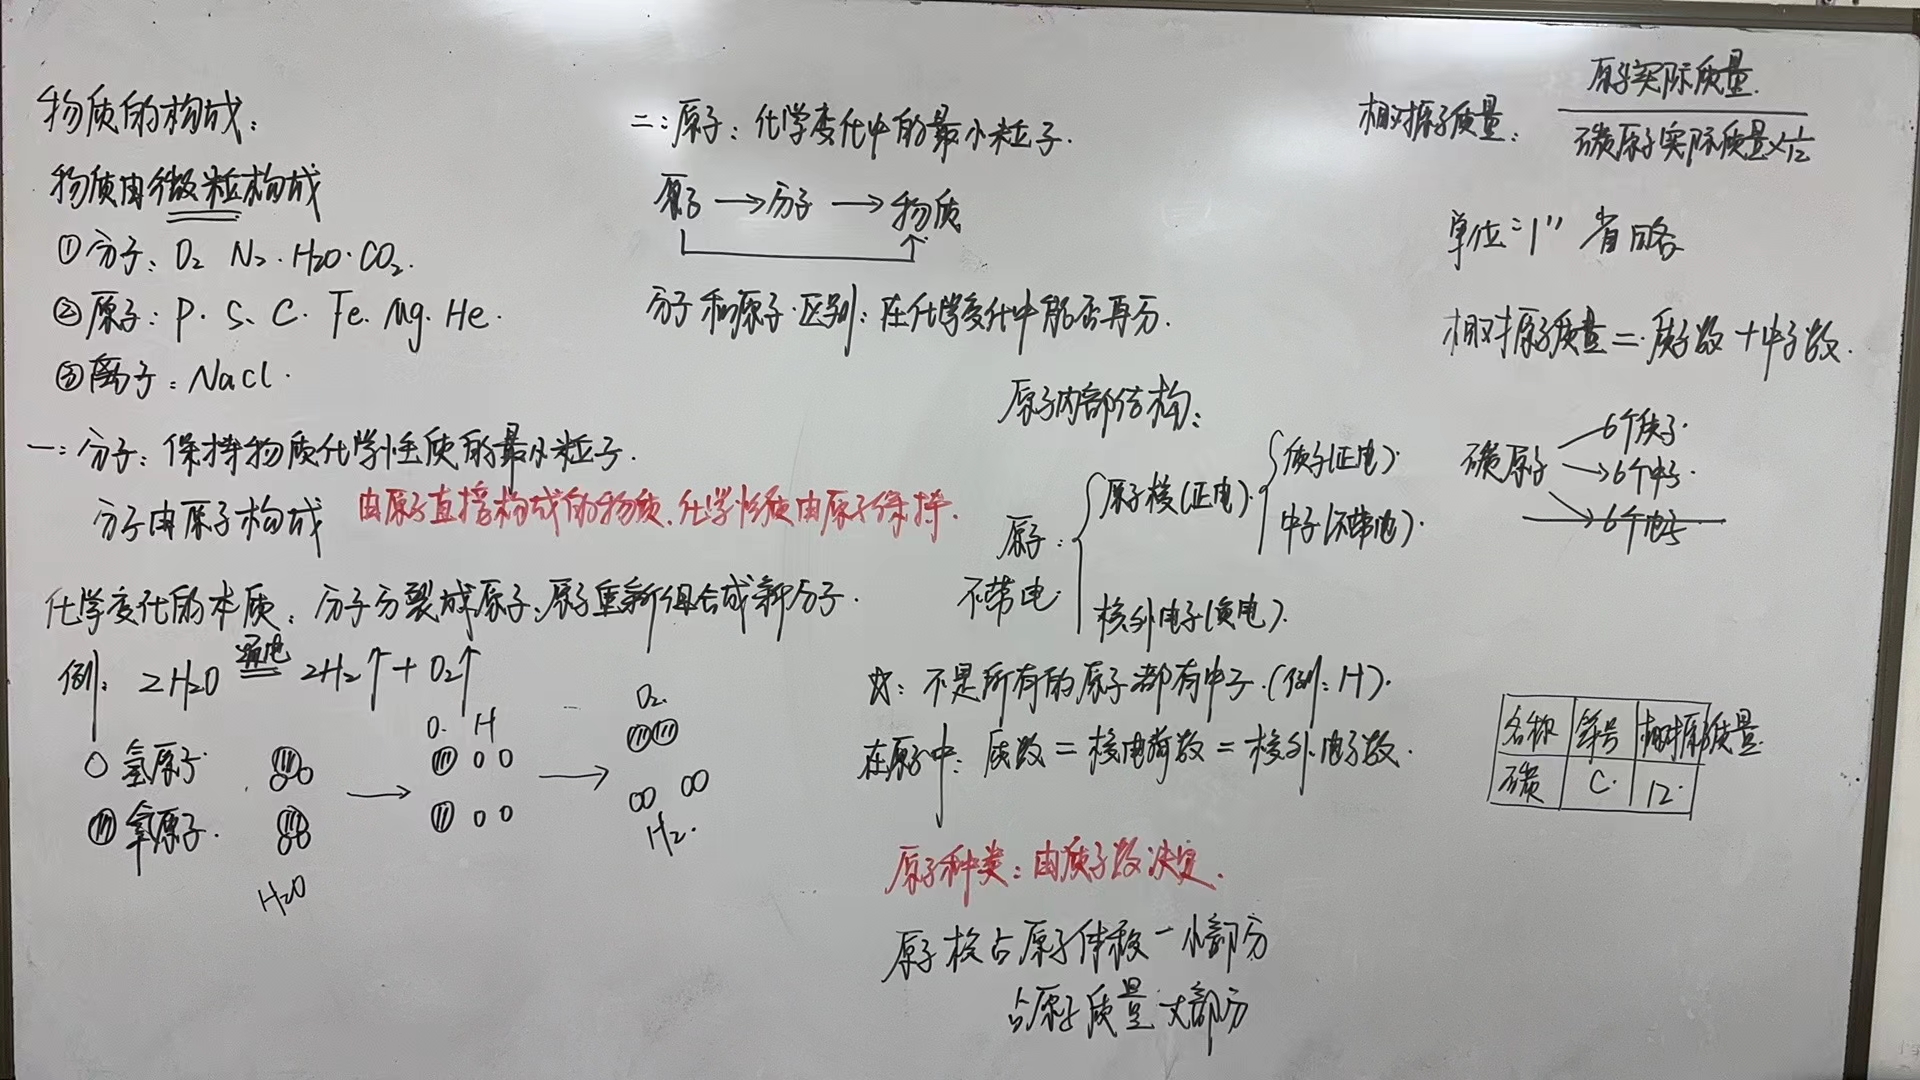 物质的构成:
物质由微粒构成
①分子: O₂ N₂. H₂O. CO₂.
②原子: P. S、C. Fe. Mg. He.
③离子: NaCl.
一: 分子: 保持物质化学性质的最小粒子.
分子由原子构成 由原子直接构成的物质, 化学性质由原子保持.
化学变化的本质: 分子分裂成原子、原子重新组合成新分子.
例: 2H₂O 通电 2H₂↑ + O₂↑
O. H
O₂.
氢原子.
氧原子.
H₂O
H₂.
二: 原子: 化学变化中的最小粒子.
原子 → 分子 → 物质
分子和原子.区别: 在化学变化中能否再分.
原子内部结构:
原子: 不带电.
原子核(正电).
质子(正电).
中子(不带电).
核外电子(负电).
注: 不是所有的原子都有中子.(例: H).
在原子中: 质数 = 核电荷数 = 核外电子数.
原子种类: 由质子数决定.
原子核占原子体积一小部分
占原子质量大部分
相对原子质量: 原子实际质量. / 碳原子实际质量×1/12
单位:“1” 省略
相对原子质量 = 质子数 + 中子数.
碳原子
6个质子.
→6个中子.
→6个电子
名称 符号 相对原子质量
碳 C. 12.